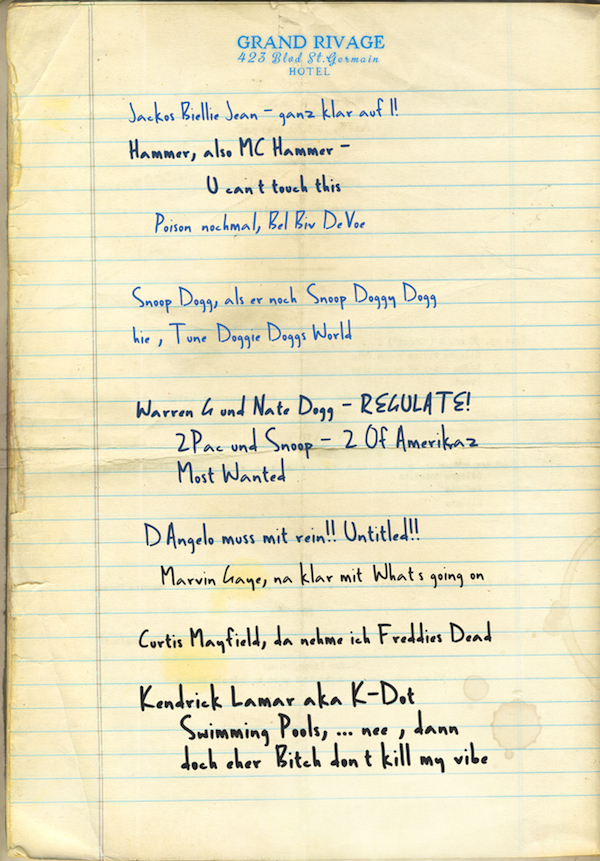 GRAND RIVAGE
423 Blvd St.Germain
HOTEL
Jackos Biellie Jean - ganz klar auf 1!
Hammer, also MC Hammer -
U can t touch this
Poison nochmal, Bel Biv DeVoe
Snoop Dogg, als er noch Snoop Doggy Dogg
hie , Tune Doggie Doggs World
Warren G und Nate Dogg - REGULATE!
2Pac und Snoop - 2 Of Amerikaz
Most Wanted
D Angelo muss mit rein!! Untitled!!
Marvin Gaye, na klar mit What s going on
Curtis Mayfield, da nehme ich Freddies Dead
Kendrick Lamar aka K-Dot
Swimming Pools, ... nee , dann
doch eher Bitch don t kill my vibe